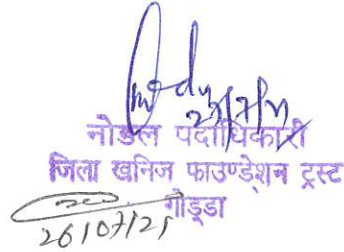 23/7/21
नोडल पदाधिकारी
जिला खनिज फाउण्डेशन ट्रस्ट
गोड्डा
26/07/21